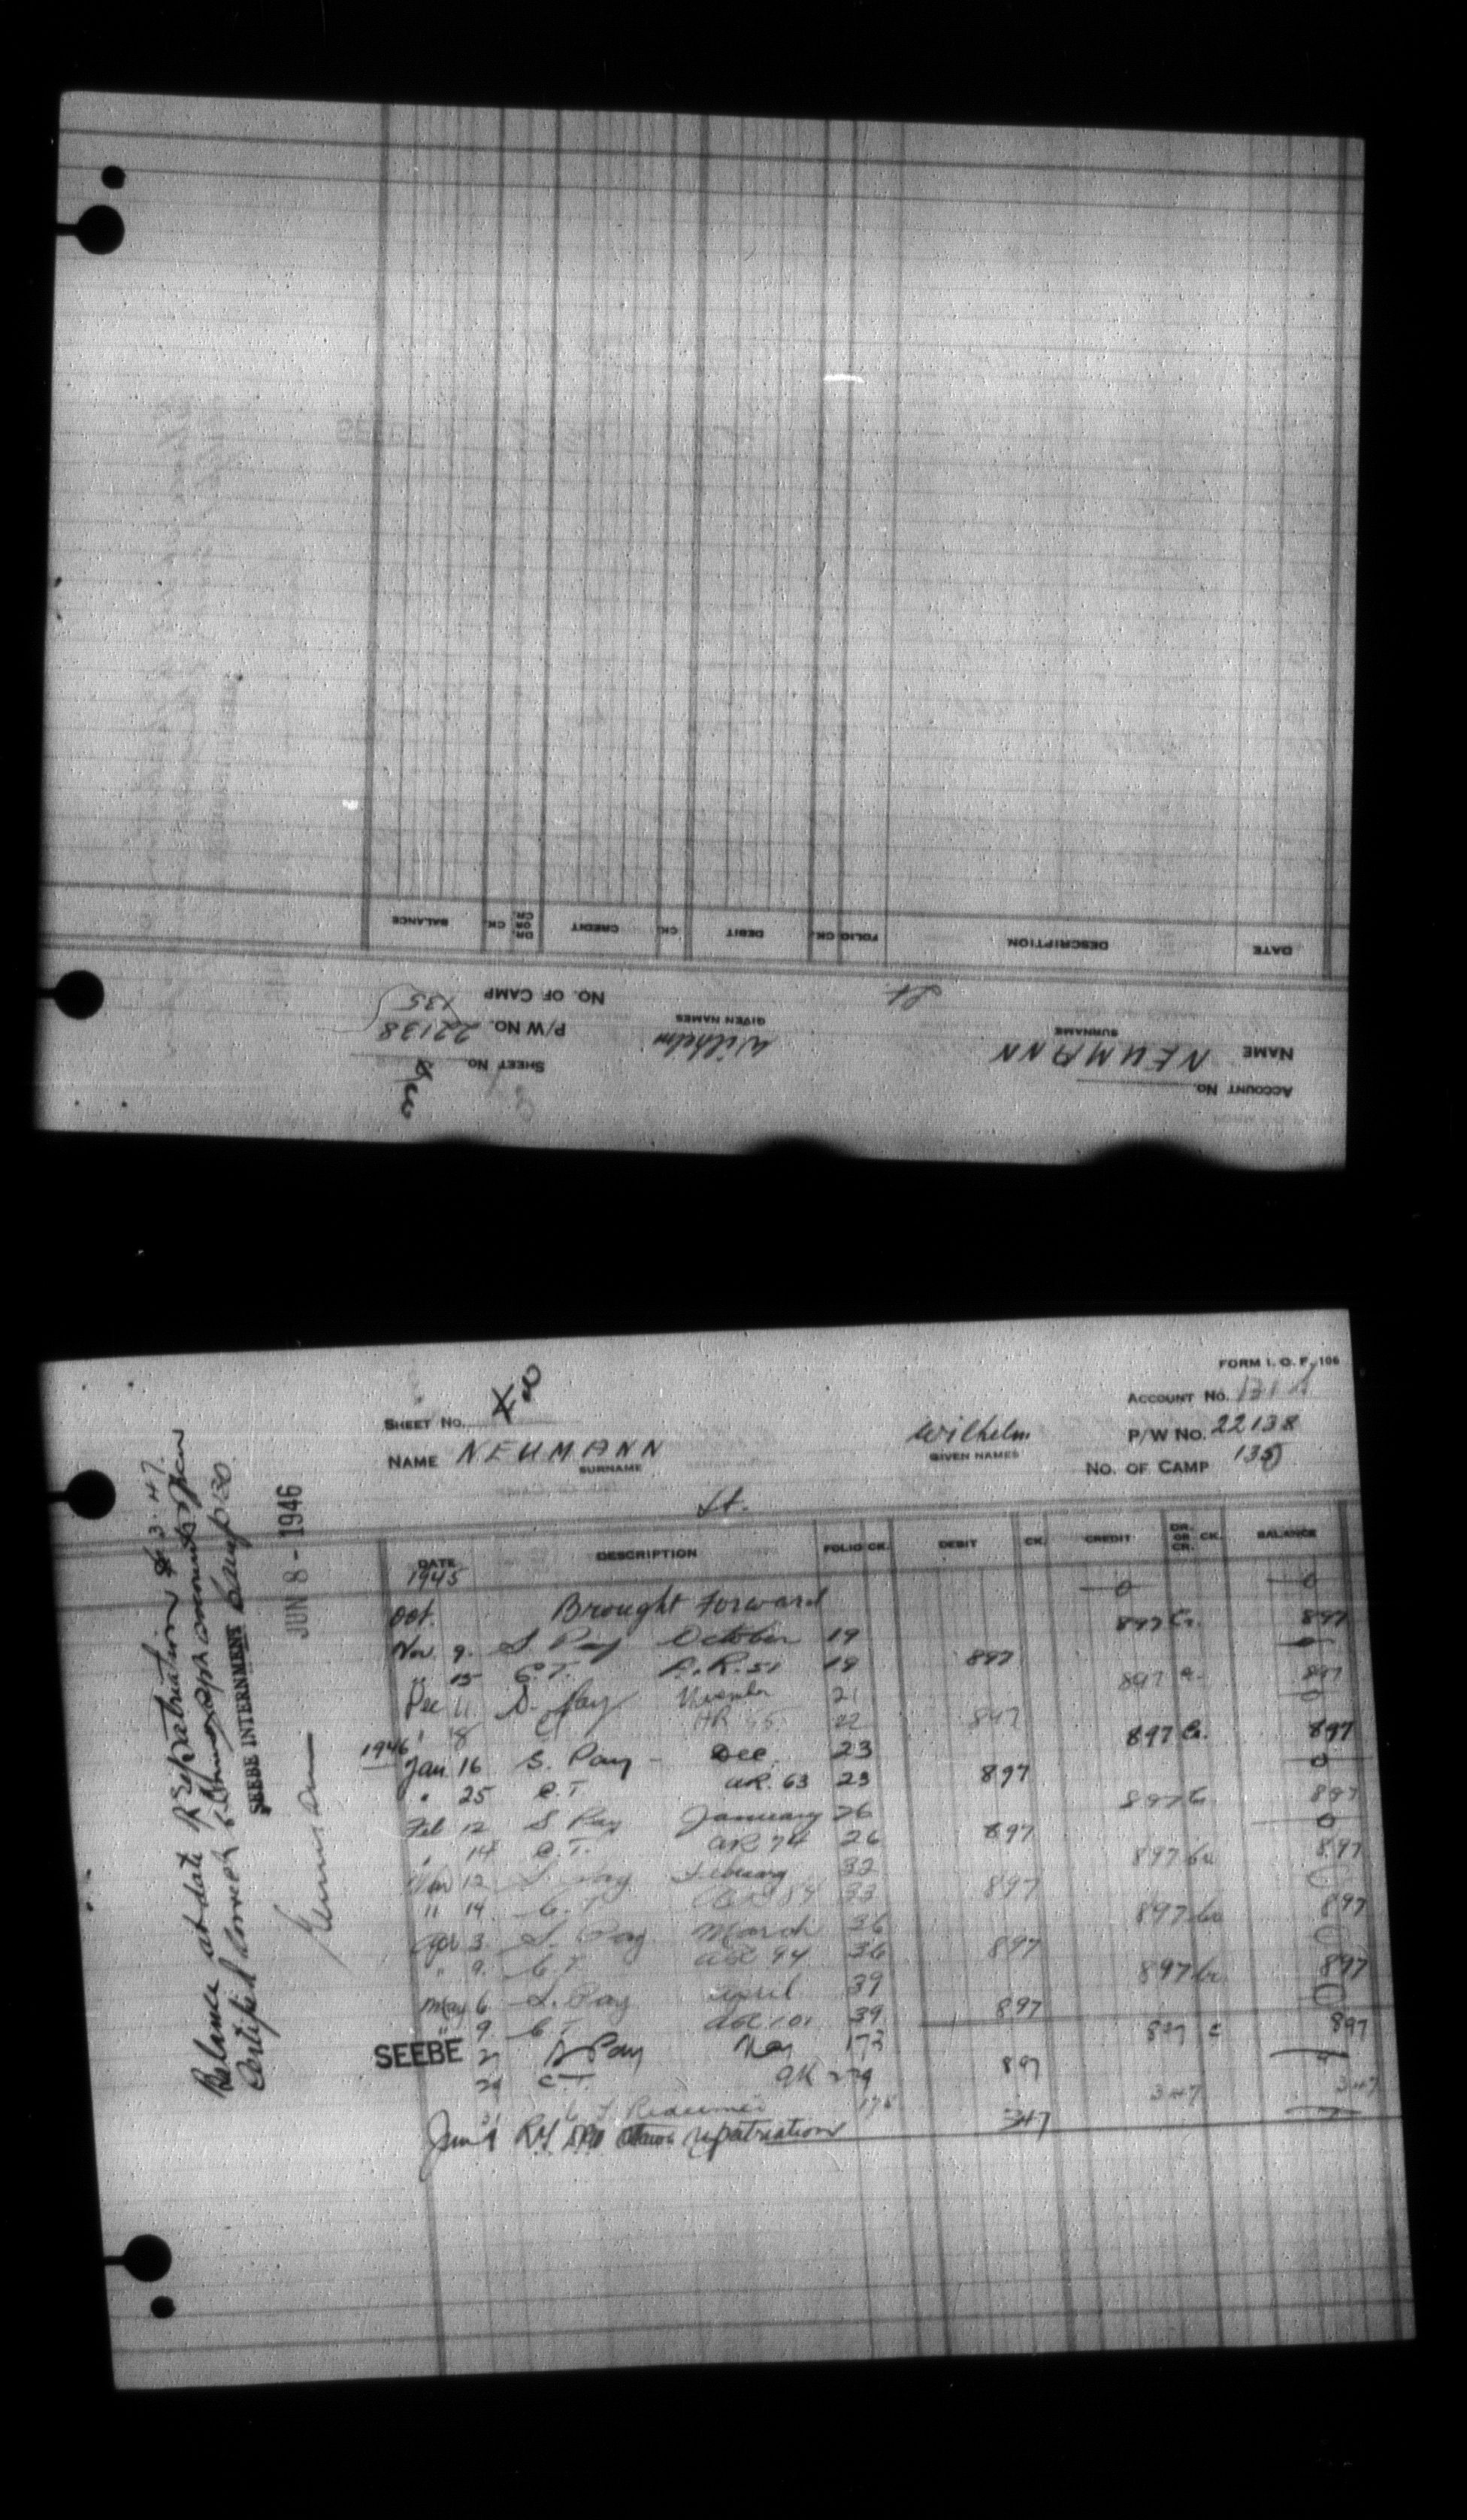 ACCOUNT NO.
NAME NEUMANN Wilhelm
SURNAME GIVEN NAMES
SHEET NO.
P/W NO. 22138
NO. OF CAMP 135
Lt
DATE DESCRIPTION FOLIO CK. DEBIT CK. CREDIT DR. OR CR. CK. BALANCE
FORM I. O. F. 106
ACCOUNT NO.
SHEET NO.
P/W NO. 22138
NAME NEUMANN Wilhelm
SURNAME GIVEN NAMES
NO. OF CAMP 135
Lt.
DATE DESCRIPTION FOLIO CK. DEBIT CK. CREDIT DR. OR CR. CK. BALANCE
1945
Oct. Brought Forward 0 0
Nov. 9. S Pay October 19 897 Cr. 897
" 15 C.T. A.R. 51 19 897 0
Dec 11 S. Pay 21 897 897
" 18 CT AR 22 897 0
1946
Jan 16 S. Pay - Dec. 23 897 Cr. 897
" 25 C.T. AR. 63 23 897 0
Feb 12 S Pay January 26 897 Cr 897
" 14 C.T. AR 74 26 897 0
Mar 12 S. Pay 32 897 Cr 897
" 14 C.T. AR 84 33 897 0
Apr 3 S. Pay March 36 897 Cr 897
" 9. C.T. AR 94 36 897 0
May 6 S. Pay April 39 897 Cr 897
" 9. C.T. AR 101 39 897 0
SEEBE 27 S Pay May 173 897 C 897
29 C.T. 897
C T Redeemed 175 347 347
Jun repatriation 347
Balance at date of repatriation $3.47
Certified correct
SEEBE INTERNMENT Camp 130
JUN 8 - 1946